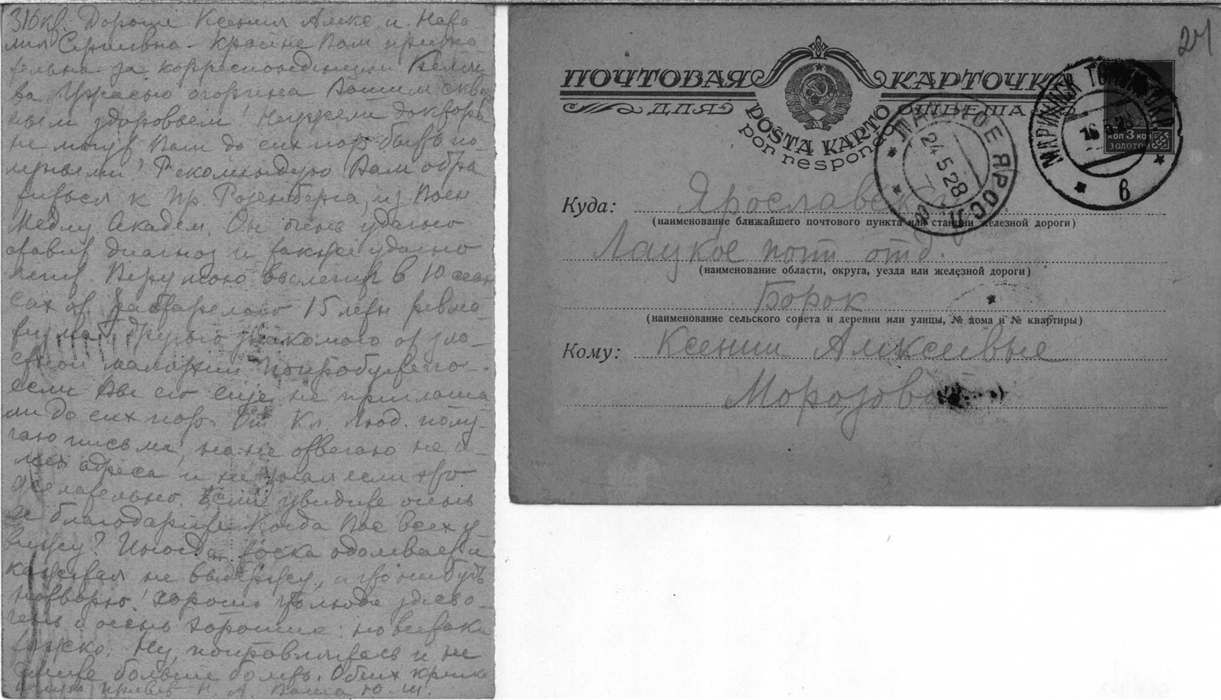 316 кв. Дорогие Ксения Алекс и Ната
лия Сергиевна - крайне Вам призна
тельна за корреспонденции
Ужасно огорчена Вашим сквер
ным здоровьем! Неужели доктора
не могут Вам до сих пор быть по
лезными? Рекомендую Вам обра
титься к Пр. Розенберга, из Воен
Медиц Академ. Он очень удачно
ставит диагноз и также удачно
лечит Веру мою вылечил в 10 сеан
сах от застарелого 15 лет ревма
тизма, другого знакомого от зло
стной малярии Попробуйте его
если Вы его еще не приглаша
ли до сих пор. От Кл. Люд. полу
чаю письма, но не отвечаю не и-
мея адреса и не зная если это
желательно. Если увидите очень
ее благодарите Когда Вас всех у
вижу? Иногда тоска одолевает и
кажется не выдержу, и что нибудь
натворю! Хорошо что люди здесь
очень хорошие: но всетаки
тяжко. Ну, поправляйтесь и не
болейте больше Обеих крепко
привет Н. А. Ваша Ю
24
ПОЧТОВАЯ КАРТОЧКА
ДЛЯ ОТВЕТА
POŜTA KARTO
por respondo
МАРИИНСК ТОМ ОКР.
16 5 28
в
3 КОП
ЗОЛОТОМ
ЛАЦКОЕ ЯРОСЛ.
24 5 28
Куда: Ярославск
(наименование ближайшего почтового пункта или станции железной дороги)
Лацкое почт отд.
(наименование области, округа, уезда или железной дороги)
Борок
(наименование сельского совета и деревни или улицы, № дома и № квартиры)
Кому: Ксении Алексеевне
Морозовой